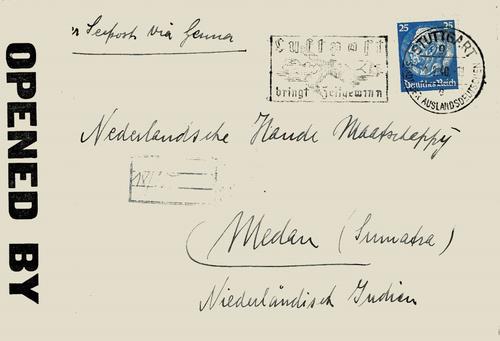 Seepost via Genua
Luftpost
bringt Zeitgewinn
25 25
Deutsches Reich
STUTTGART
AUSLANDSDEUTSCHEN
Nederlandsche Handel Maatschappy
Medan (Sumatra)
Niederländisch Indien
OPENED BY